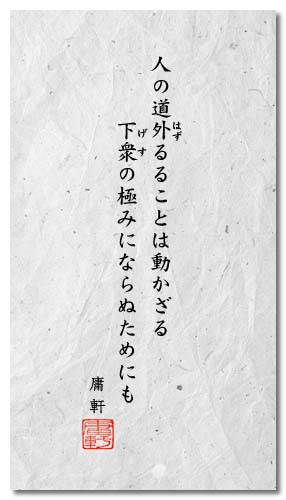 人の道外るることは動かざる
はず
下衆の極みにならぬためにも
げす
庸軒